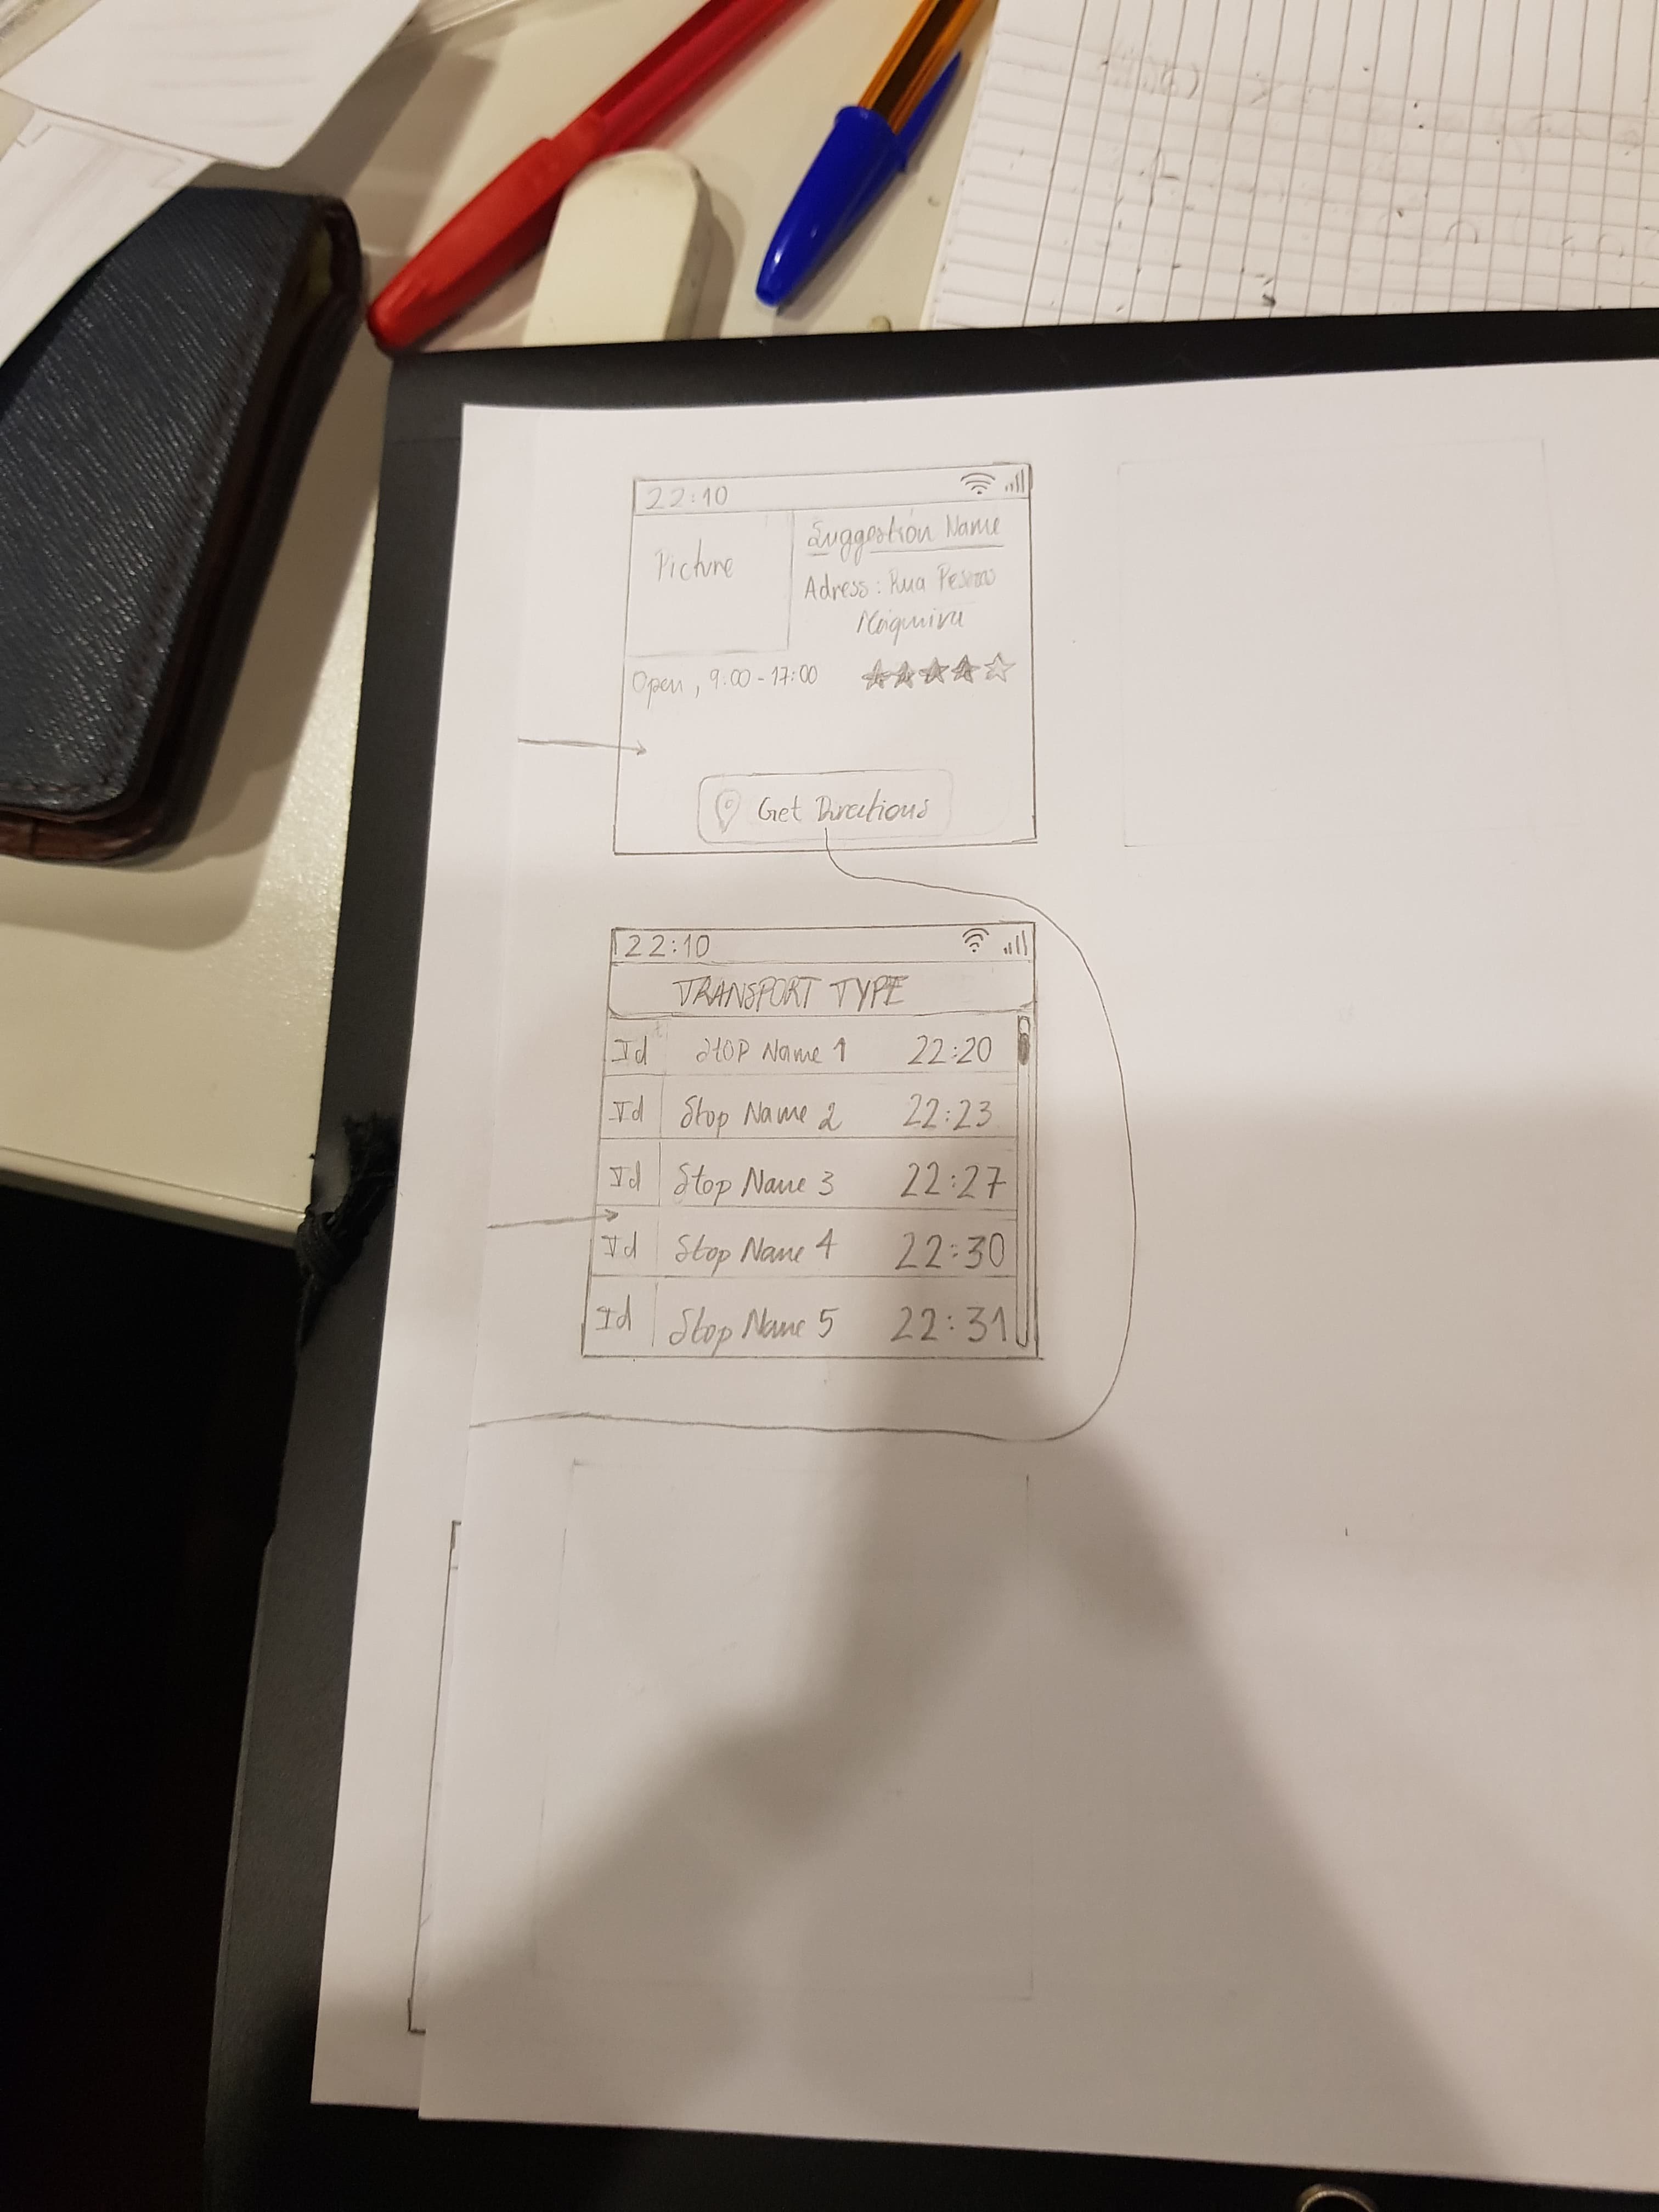 22:10
Picture
Suggestion Name
Adress : Rua
Open, 9:00 - 17:00
Get Directions
22:10
TRANSPORT TYPE
Id Stop Name 1 22:20
Id Stop Name 2 22:23
Id Stop Name 3 22:27
Id Stop Name 4 22:30
Id Stop Name 5 22:31